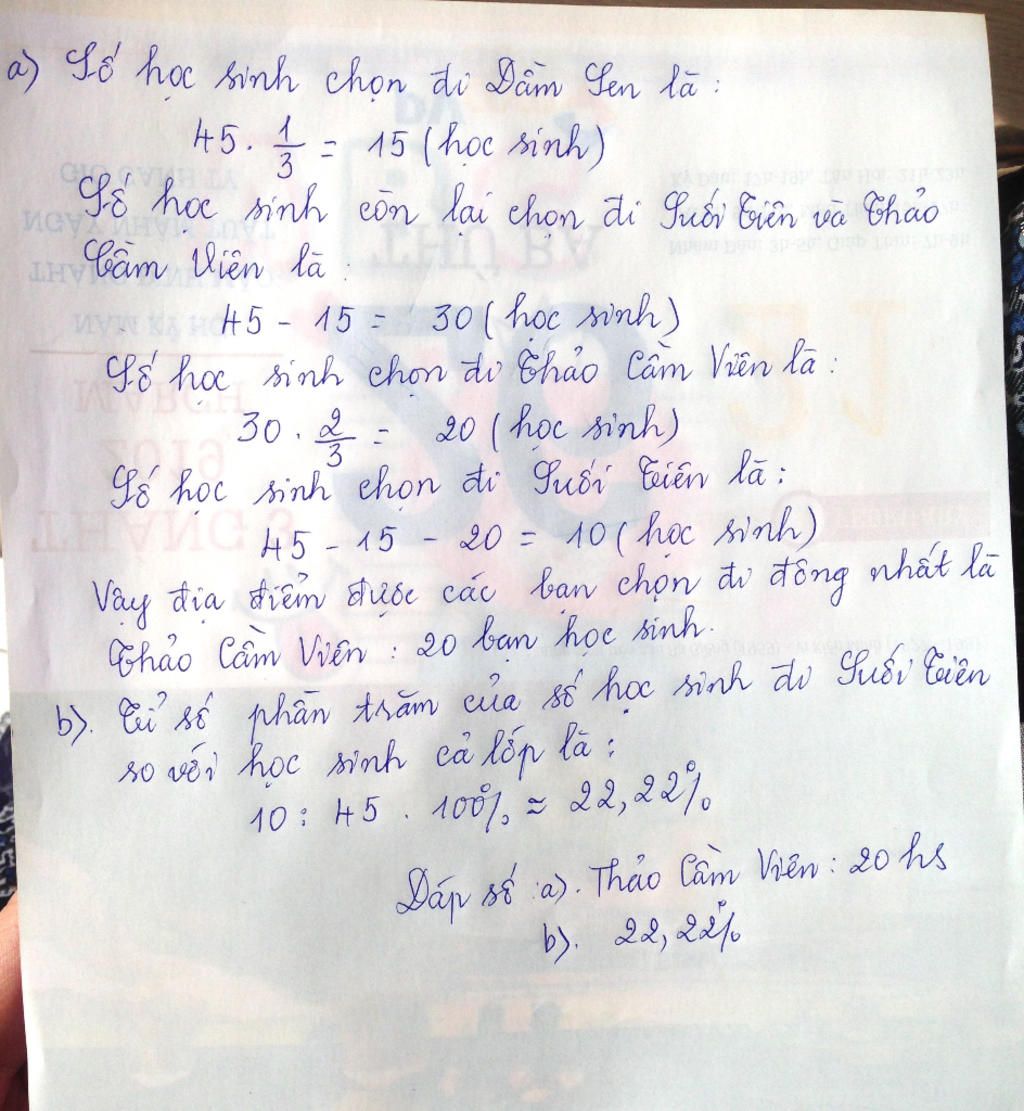 a) Số học sinh chọn đi Đầm Sen là:
45 . 1/3 = 15 (học sinh)
Số học sinh còn lại chọn đi Suối Tiên và Thảo
Cầm Viên là:
45 - 15 = 30 (học sinh)
Số học sinh chọn đi Thảo Cầm Viên là:
30 . 2/3 = 20 (học sinh)
Số học sinh chọn đi Suối Tiên là:
45 - 15 - 20 = 10 (học sinh)
Vậy địa điểm được các bạn chọn đi đông nhất là
Thảo Cầm Viên: 20 bạn học sinh.
b). Tỉ số phần trăm của số học sinh đi Suối Tiên
so với học sinh cả lớp là:
10 : 45 . 100% ≈ 22,22%
Đáp số: a). Thảo Cầm Viên: 20 hs
b). 22,22%
THỨ BA
NGÀY NHÂM TUẤT
MARCH
2019
THÁNG 3
31